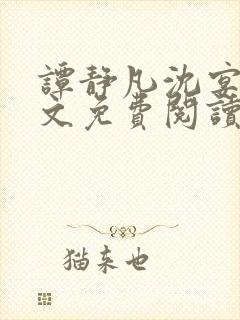 譚靜凡沈宴
文免費閱讀
猫来也